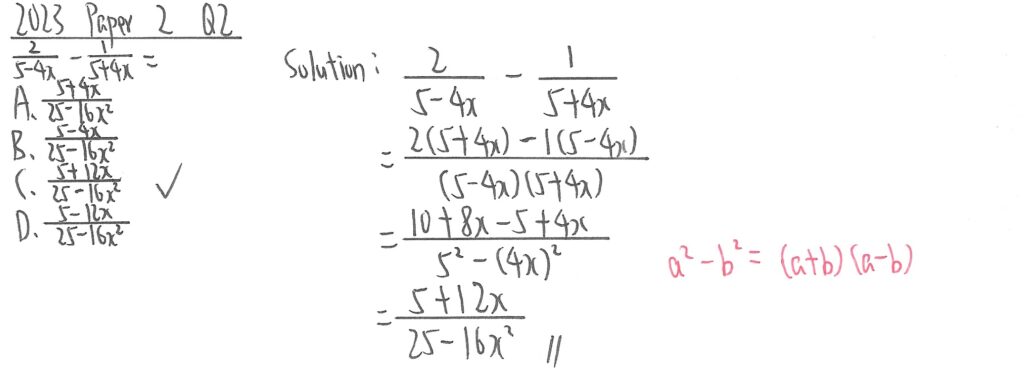 2023 Paper 2 Q2
2/(5-4x) - 1/(5+4x) =
A. (5+4x)/(25-16x²)
B. (5-4x)/(25-16x²)
C. (5+12x)/(25-16x²) ✓
D. (5-12x)/(25-16x²)
Solution: 2/(5-4x) - 1/(5+4x)
= (2(5+4x) - 1(5-4x))/((5-4x)(5+4x))
= (10+8x-5+4x)/(5²-(4x)²)
a²-b² = (a+b)(a-b)
= (5+12x)/(25-16x²) //